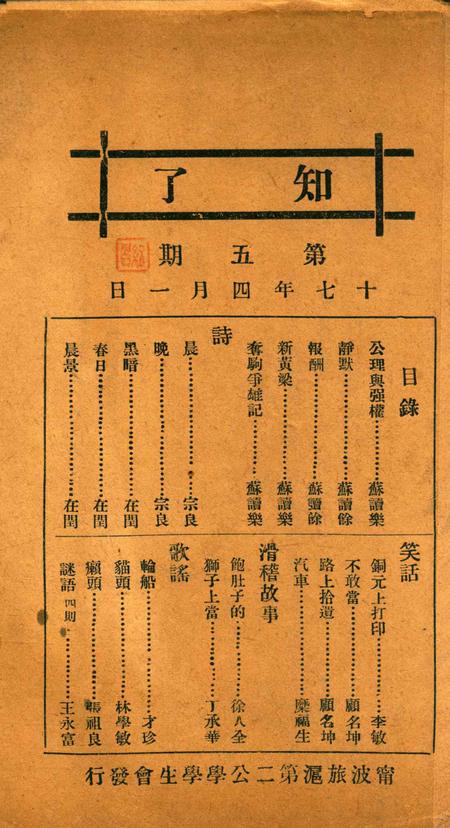 知了
第五期
十七年四月一日
目錄
公理與强權 蘇讀樂
靜默 蘇讀餘
報酬 蘇讀餘
新黃粱 蘇讀樂
奪駒爭雄記 蘇讀樂
詩
晨 宗良
晚 宗良
黑暗 在閏
春日 在閏
晨景 在閏
笑話
銅元上打印 李敏
不敢當 顧名坤
路上拾遺 顧名坤
汽車 麋福生
滑稽故事
飽肚子的 徐人全
獅子上當 丁承華
歌謠
輪船 才珍
貓頭 林學敏
癩頭 張祖良
謎語四期 王永富
甯波旅滬第二公學學生會發行